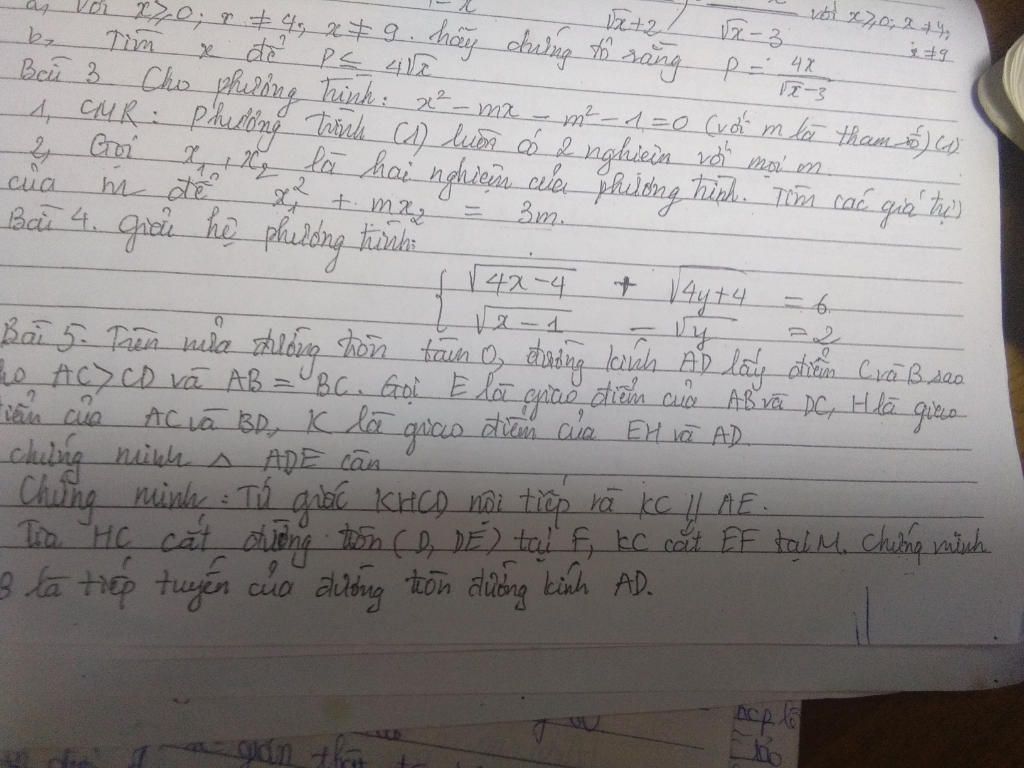 a, Với x ≥ 0; x ≠ 4; x ≠ 9. hãy chứng tỏ rằng P = 4x / √x - 3
4 - x √x + 2 √x - 3 với x ≥ 0; x ≠ 4, x ≠ 9
b, Tìm x để P ≤ 4√x
Bài 3 Cho phương trình: x² - mx - m² - 1 = 0 (với m là tham số) (1)
1, CMR: phương trình (1) luôn có 2 nghiệm với mọi m.
2, Gọi x₁, x₂ là hai nghiệm của phương trình. Tìm các giá trị
của m để x₁² + mx₂ = 3m.
Bài 4. Giải hệ phương trình:
{ √4x - 4 + √4y + 4 = 6
√x - 1 - √y = 2
Bài 5. Trên nửa đường tròn tâm O, đường kính AD lấy điểm C và B sao
cho AC > CD và AB = BC. Gọi E là giao điểm của AB và DC, H là giao
điểm của AC và BD, K là giao điểm của EH và AD.
chứng minh △ ADE cân
Chứng minh: Tứ giác KHCD nội tiếp và KC // AE.
Tia HC cắt đường tròn (D, DE) tại F, KC cắt EF tại M. Chứng minh
B là tiếp tuyến của đường tròn đường kính AD.